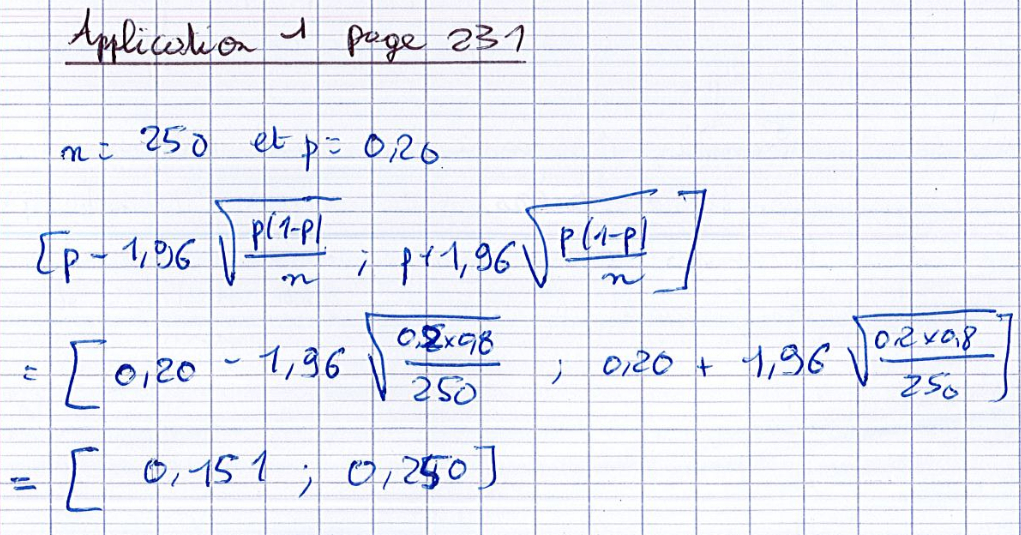 Application 1 page 231
n = 250 et p = 0,20
[p - 1,96 √(p(1-p)/n) ; p + 1,96 √(p(1-p)/n)]
= [0,20 - 1,96 √(0,2×0,8/250) ; 0,20 + 1,96 √(0,2×0,8/250)]
= [0,151 ; 0,250]